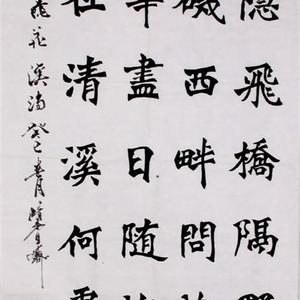 隐飛橋隔野
磯西畔問
華盡日随
在清溪何處
花溪詩癸巳春月